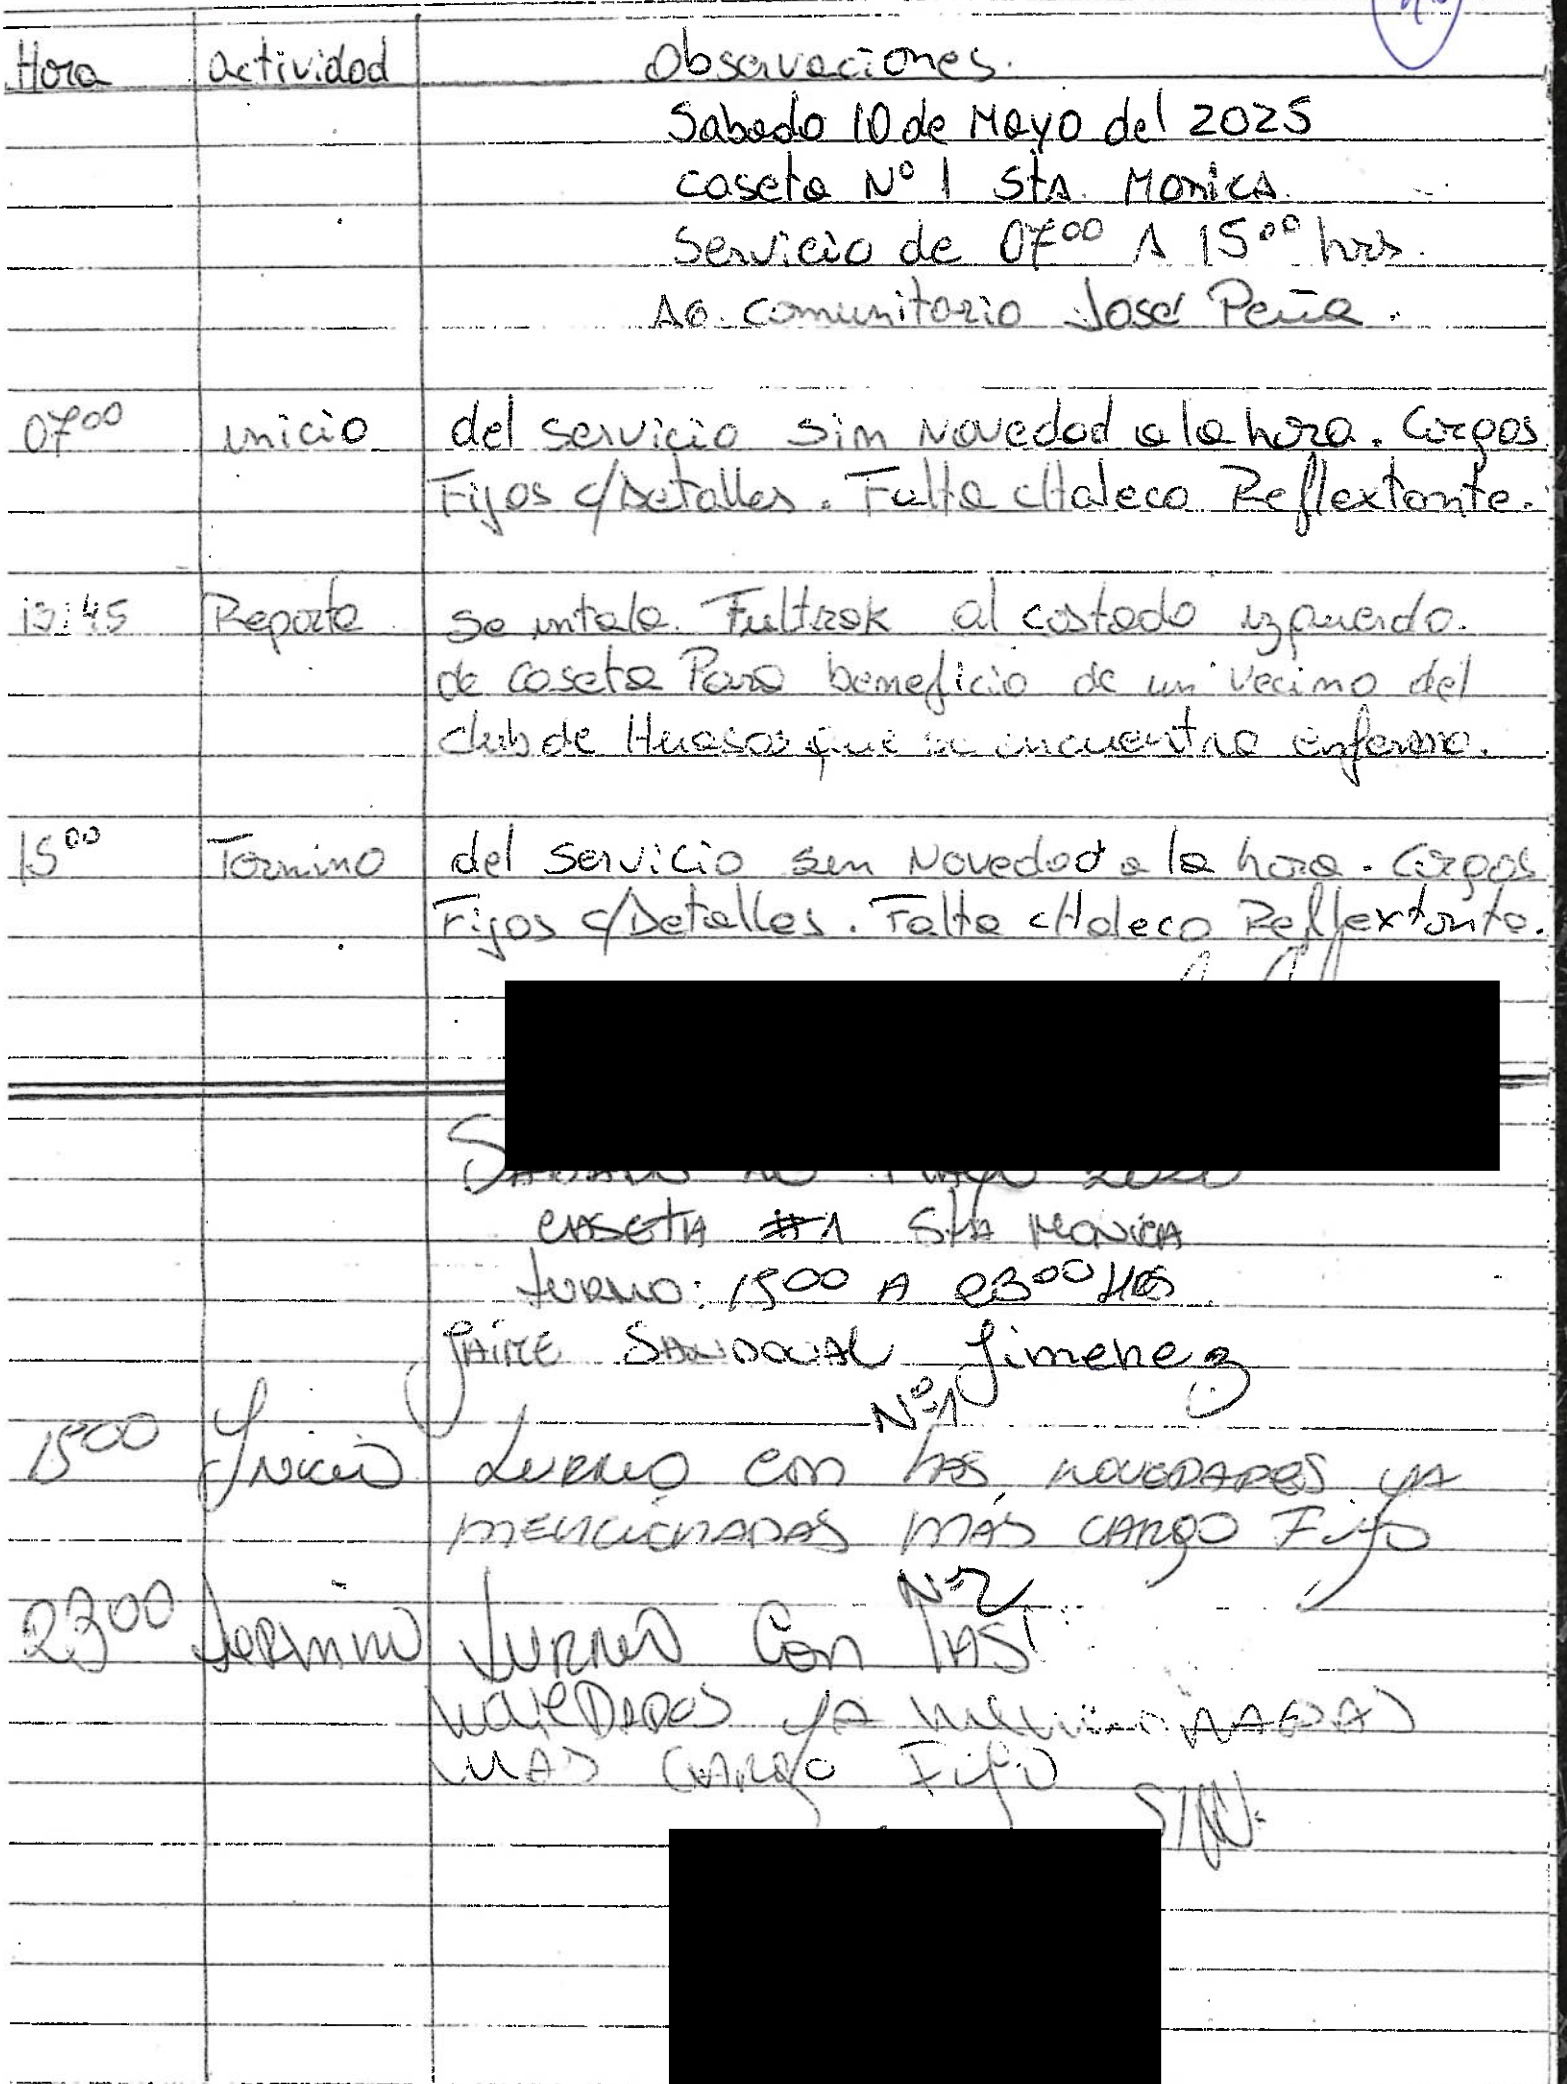 Hora actividad Observaciones.
Sabado 10 de Mayo del 2025
caseta Nº 1 Sta. Monica.
Servicio de 07⁰⁰ A 15⁰⁰ hrs.
Ag. comunitario José Peña.
07⁰⁰ inicio del servicio sin Novedad a la hora. Cargos
Fijos c/Detalles. Falta chaleco Reflextante.
13:45 Reporte se intala. Fultrak al costado izquierdo.
de caseta Para beneficio de un vecino del
club de Huasos que se encuentra enfermo.
15⁰⁰ Termino del servicio sin Novedad a la hora. Cargos
Fijos c/Detalles. Falta chaleco Reflextante.
CASETA #1 Sta MONICA
turno: 15⁰⁰ A 23⁰⁰ HRS
JAIME SANDOVAL Jimenez
Nº1
15⁰⁰ Inicio turno con las novedades ya
mencionadas más cargo Fijo
Nº2
23⁰⁰ termino turno con las
novedades ya mencionadas
mas cargo Fijo